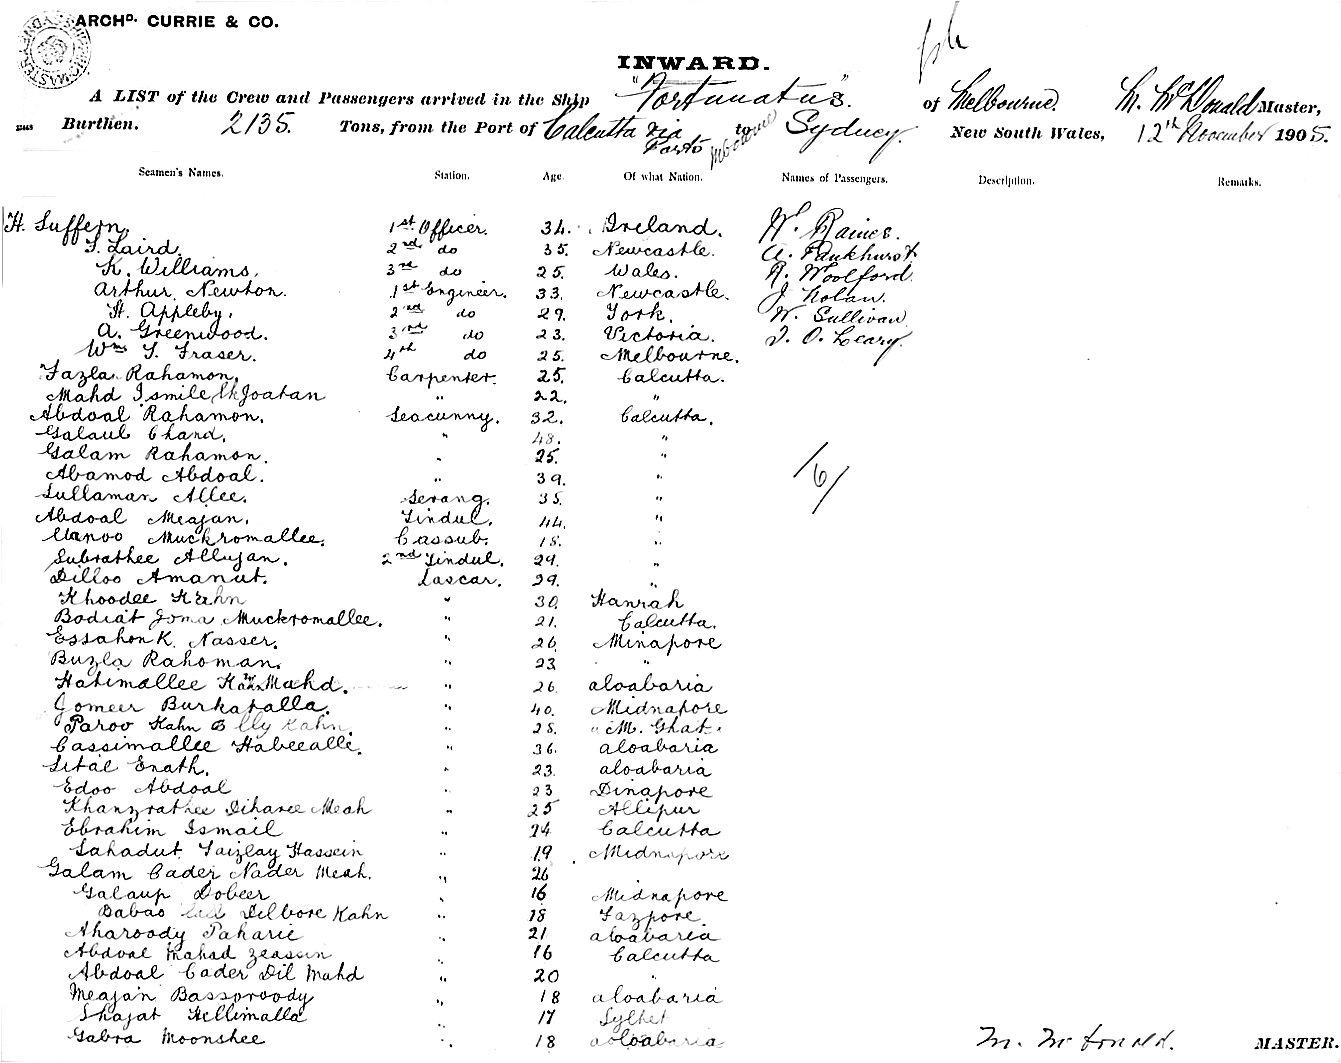 ARCHD. CURRIE & CO.
INWARD.
A LIST of the Crew and Passengers arrived in the Ship "Fortunatus". of Melbourne. M. McDonald Master,
Burthen. 2135. Tons, from the Port of Calcutta via Ports Melbourne to Sydney. New South Wales, 12th November 1905.
Seamen's Names. Station. Age. Of what Nation. Names of Passengers. Description. Remarks.
H. Suffern, 1st Officer. 34. Ireland. W. Raines.
T. Laird. 2nd do 35. Newcastle. A. Pankhurst
K. Williams. 3rd do 25. Wales. R. Woolford.
Arthur. Newton. 1st Engineer. 33. Newcastle. J. Nolan.
H. Appleby. 2nd do 29. York. W. Sullivan
A. Greenwood. 3rd do 23. Victoria. J. O. Leary.
Wm T. Fraser. 4th do 25. Melbourne.
Fazla. Rahamon. Carpenter. 25. Calcutta.
Mahd Ismile Sk Joatan " 22. "
Abdoal Rahamon. Seacunny. 32. Calcutta.
Galaub Chand. " 48. "
Galam Rahamon. " 25. "
Abamod Abdoal. " 39. " /6/
Sullaman Allee. Serang. 35. "
Abdoal Meajan. Tindul. 44. "
Muckromallee. Cassub. 18. "
Subrathee Allyjan. 2nd Tindul. 29. "
Dilloo Amanut. Lascar. 29. "
Khoodee Kahn " 30. Hanrah
Bodiat Joma Muckromallee. " 21. Calcutta.
Essahon K. Nasser. " 26. Minapore
Buzla Rahoman. " 23 "
Hatimallee Kahn Mahd. " 26. aloabaria
Jomeer Burkatalla. " 40. Midnapore
Paroo Kahn Elly Kahn. " 28. "M. Ghat."
Cassimallee Habeealle. " 36. aloabaria
Sital Enath. " 23. aloabaria
Edoo Abdoal " 23 Dinapore
Khanzrathee Diharee Meah " 25 Allipur
Ebrahim Ismail " 24 Calcutta
Sahadut Faizlay Hassein " 19 Midnapore
Galam Cader Nader Meah. " 26
Galaup Dobeer " 16 Midnapore
Babao Dilbore Kahn " 18 Fazpore
Aharoody Paharie " 21 aloabaria
Abdoal Mahad Zeassin " 16 Calcutta
Abdoal Cader Dil Mahd " 20 "
Meajan Bassoroody " 18 aloabaria
Shajat Hellimalla " 17 Sylhet
Gabra Moonshee " 18 aoloabaria
M. McDonald. MASTER.